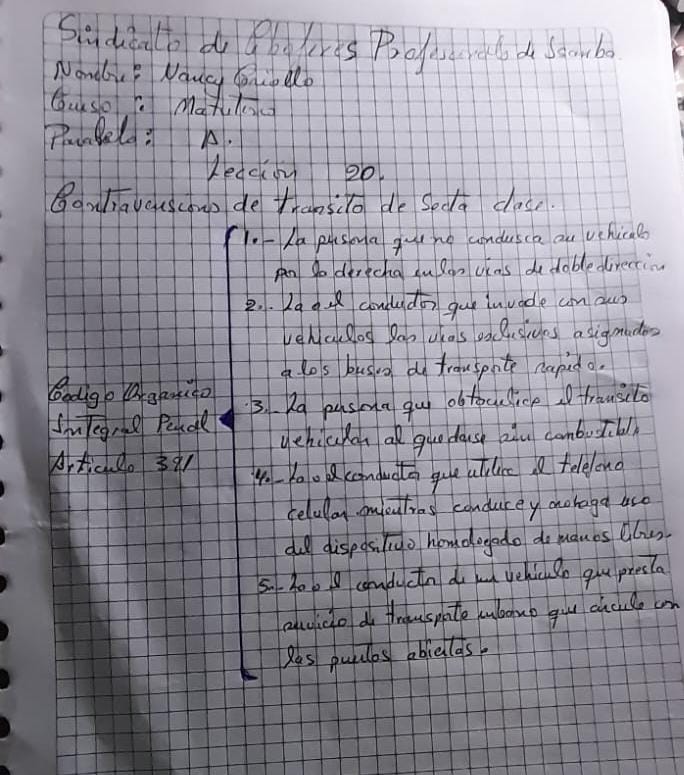 Sindicato de Choferes Profesionales de Szcumbo.
Nombre: Nancy Criollo
Curso: Matutino
Paralelo: A.
Lección 20.
Contravensiones de transito de Secta clase.
1.- La persona que no condusca su vehiculo
por la derecha en las vias de doble dirección
2.- La o el conductor que invade con sus
vehiculos las vias exclusivas asignados
a los buses de transporte rapido.
Codigo Organico
Integral Penal
Articulo 391
3.- La persona que obstaculice el transito
vehicular al quedarse sin combustible
4.- La o el conductor que utilice el telefono
celular mientras conduce y no haga uso
del dispositivo homologado de manos libres.
5.- La o el conductor de un vehiculo que presta
servicio de transporte urbano que circule con
las puertas abiertas.